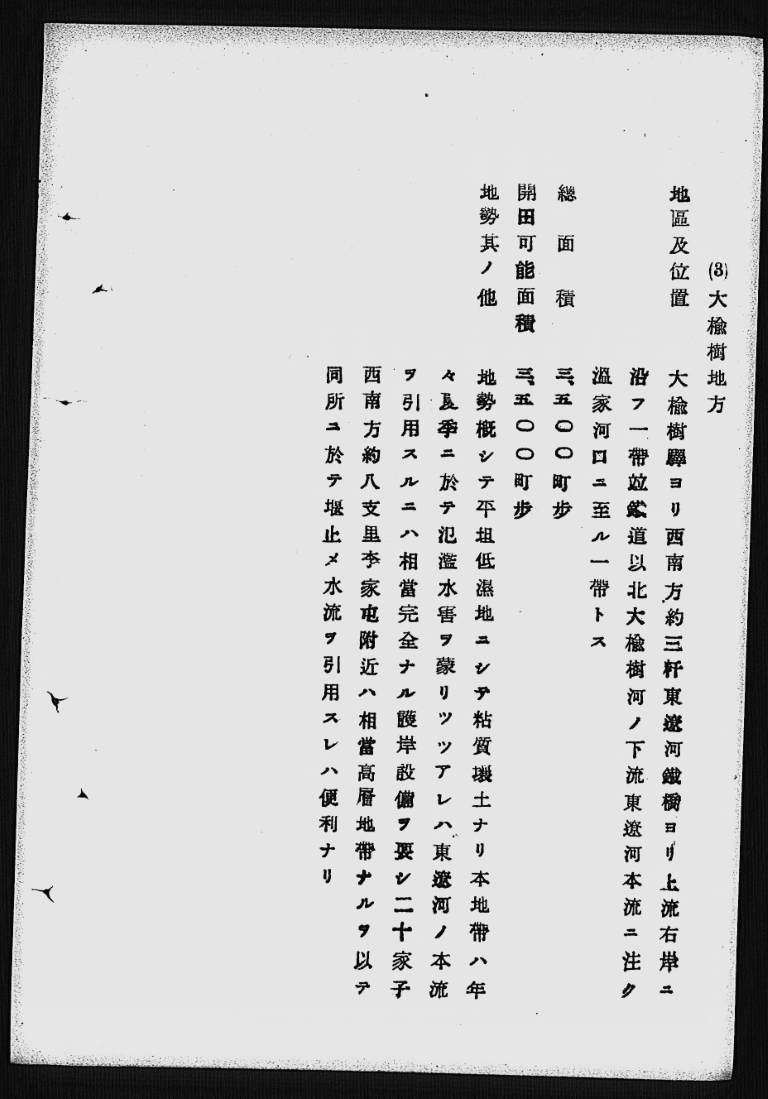 (3)大楡樹地方
地區及位置　大楡樹驛ヨリ西南方約三粁東遼河鐵橋ヨリ上流右岸ニ
沿フ一帶竝鐵道以北大楡樹河ノ下流東遼河本流ニ注ク
溫家河口ニ至ル一帶トス
総面積　三、五〇〇町步
開田可能面積　三、五〇〇町步
地勢其ノ他　地勢槪シテ平坦低濕地ニシテ粘質壤土ナリ本地帶ハ年
々夏季ニ於テ氾濫水害ヲ蒙リツツアレハ東遼河ノ本流
ヲ引用スルニハ相當完全ナル護岸設備ヲ要シ二十家子
西南方約八支里李家屯附近ハ相當高層地帶ナルヲ以テ
同所ニ於テ堰止メ水流ヲ引用スレハ便利ナリ